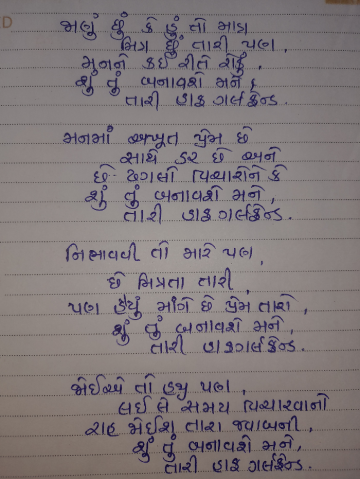 જાણું છું કે હું તો માત્ર
મિત્ર છું તારી પણ,
મનને કઈ રીતે રોકું,
શું તું બનાવશે મને,
તારી હાફ ગર્લફ્રેન્ડ.
મનમાં અખૂત પ્રેમ છે
સાથે ડર છે અને
છે ઢગલો વિચારોને કે
શું તું બનાવશે મને,
તારી હાફ ગર્લફ્રેન્ડ.
નિભાવવી તો મારે પણ,
છે મિત્રતા તારી,
પણ હૈયું માંગે છે પ્રેમ તારો,
શું તું બનાવશે મને,
તારી હાફગર્લફ્રેન્ડ.
જોઈએ તો હજી પણ,
લઈ લે સમય વિચારવાનો
રાહ જોઈશ તારા જવાબની,
શું તું બનાવશે મને,
તારી હાફ ગર્લફ્રેન્ડ.